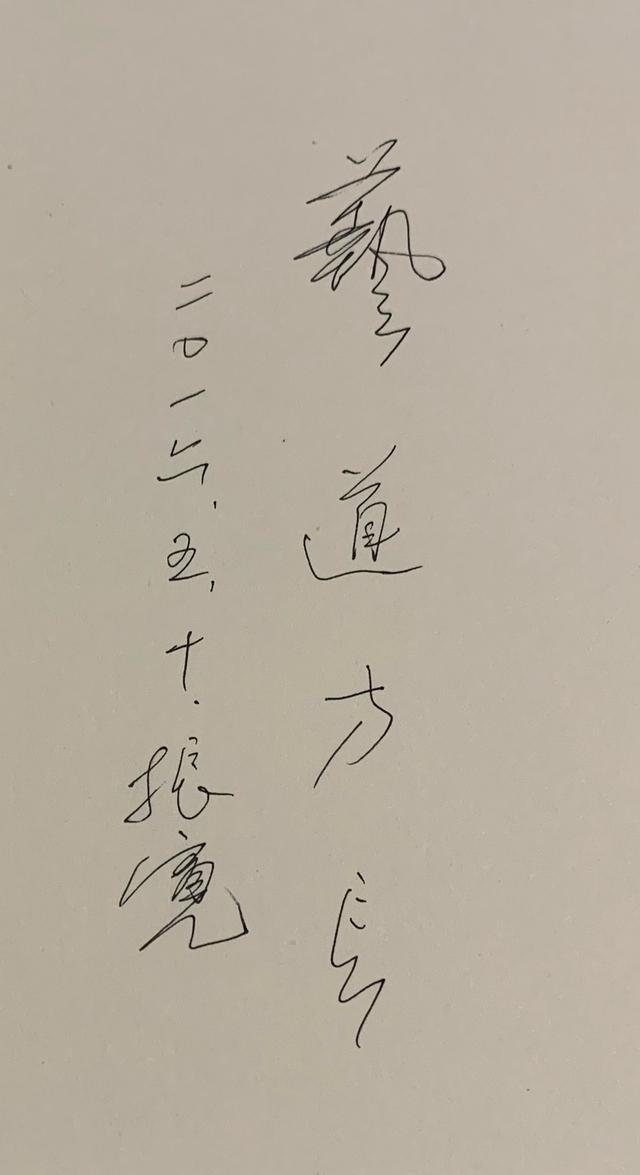 藝道方長
二〇一六.五.十.振寬